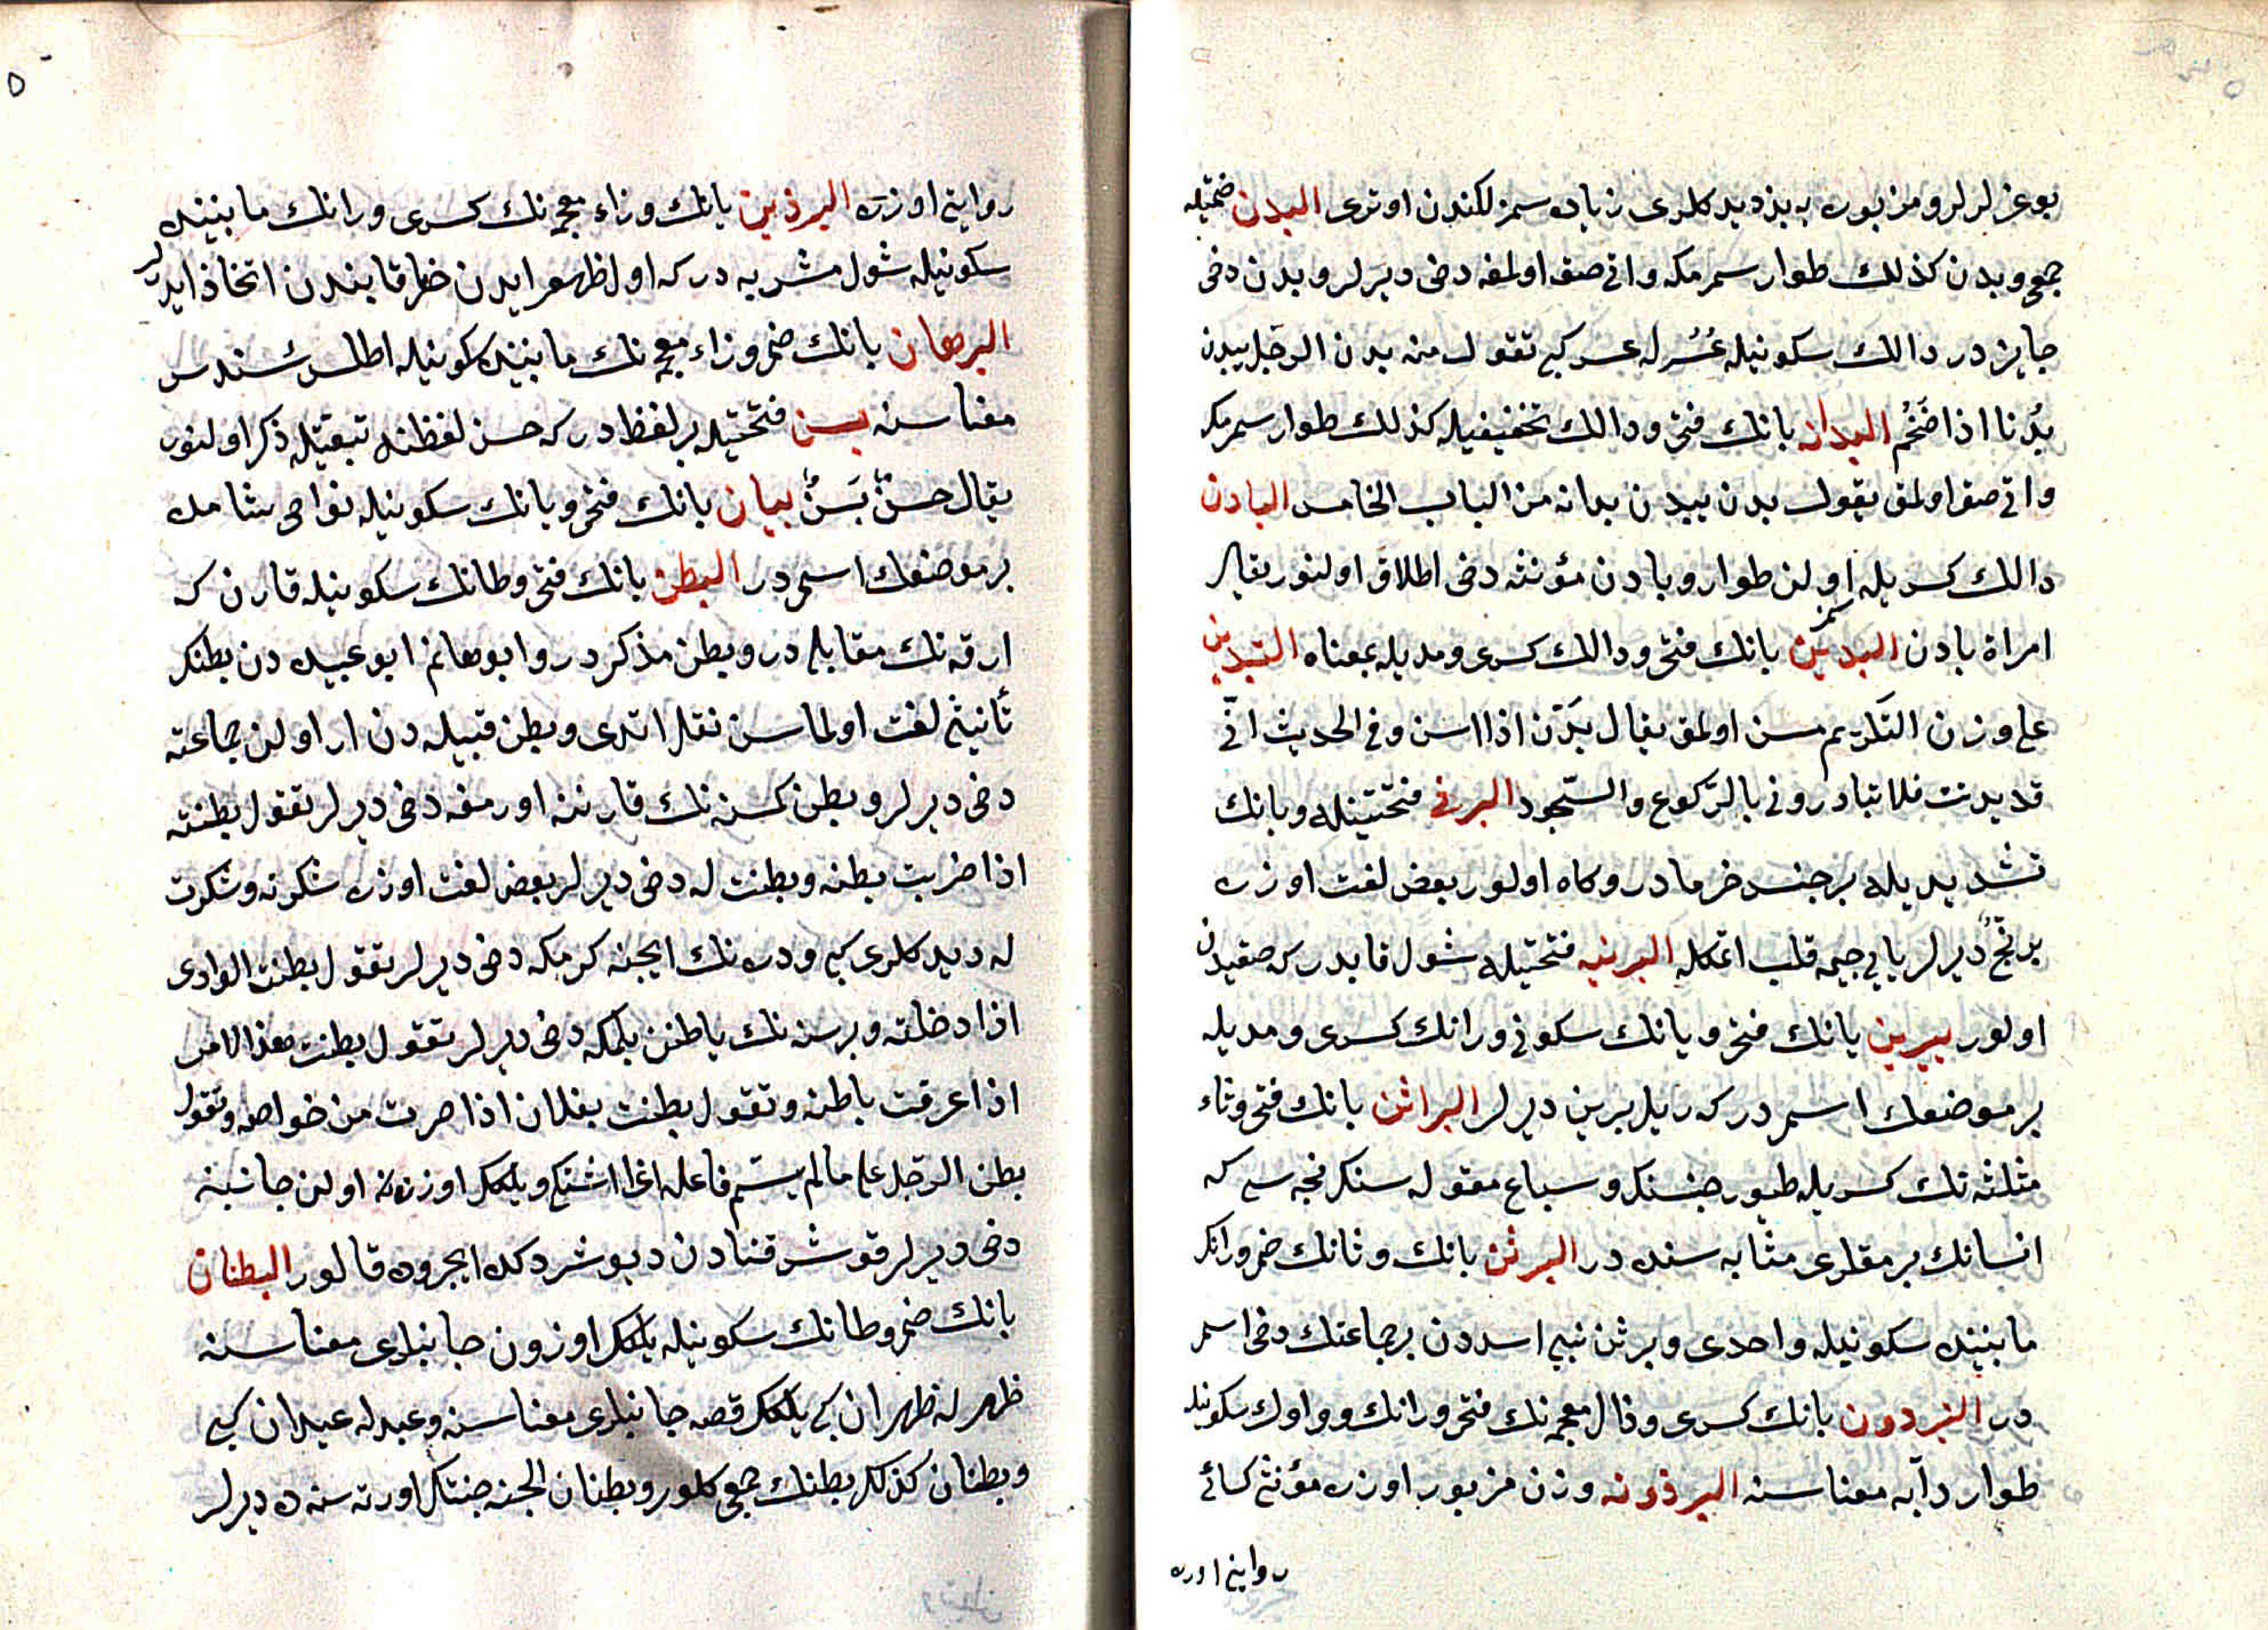 بوغزلرلر ومزبوره به بذ ديدكلرى زياده سمزلكندن اوترى البدن ضمتيله
جمعى وبدن كذلك طوار سمرمكه واتى صق اولمغه دخى ديرلر وبدن دخى
جايزدر دالك سكونيله عُسُر له عسر كبى تقول منه بدن الرجل يبدن
بُدنا اذا ضَخُم البدان بانك فتحى ودالك تخفيفيله كذلك طوار سمرمك
واتى صق اولمق يقول بدن يبدن بدانه من الباب الخامس البادن
دالك كسريله سمز اولن طوار وبادن مؤنثه دخى اطلاق اولنور يقال
امراة بادن البدين بانك فتحى ودالك كسرى ومديله بمعناه التبدين
على وزن التكريم مسن اولمق يقال بَدَّن اذا اسن وفى الحديث انّى
قد بدنت فلا تبادرونى بالرّكوع والسّجود البرنى فتحتينله وبانك
تشديديله برجنس خرمادر وكاه اولور بعض لغت اوزره
برنجّ ديرلر يايى جيمه قلب اتمكله البرنيه فتحتيله شول قابدر كه صقيدن
اولور يبرين يانك فتحى وبانك سكونى ورانك كسرى ومديله
برموضعك اسمدر كه رمل يبرين ديرلر البراثن بانك فتحى وثاء
مثلثه نك كسريله طيور جنسنك وسباع مقوله سنك پنجه سى كه
انسانك برمقلرى مثابه سنده در البرثن بانك وثانك ضمى ورانك
مابيننده سكونيله واحدى وبرثن بنى اسددن برجماعتك دخى اسم
در البرذون بانك كسرى وذال معجمه نك فتحى ورانك وواوك سكونيله
طوار دآبه معناسنه البرذونه وزن مزبور اوزره مؤنثى كسائى
روايتى اوزره
٥
روايتى اوزره البرزين بانك وزاء معجمه نك كسرى ورانك مابيننده
سكونيله شول مشربه در كه اول ظهور ايدن خلر قابندن اتخاذ ايدرلر
البرهان بانك ضمى وزاء معجمه نك مابيننده سكونيله اطلس سندس
معناسنه بسن فتحتيله بر لفظدر كه حسن لفظنه تبعيتله ذكر اولنور
يقال حسنٌ بَسَنٌ بيسان بانك فتحى ويانك سكونيله نواحى شامده
برموضعك اسمى در البطن بانك فتحى وطانك سكونيله قارن كه
ارقه نك مقابلى در وبطن مذكردر وابوحاتم ابوعبيده دن بطنك
تأنيثى لغت اولماسن نقل اتدى وبطن قبيله دن ار اولن جماعته
دخى ديرلر وبطن كسنه نك قارننه اورمغه دخى ديرلر تقول بطنته
اذا ضربت بطنه وبطنت له دخى ديرلر بعض لغت اوزره شكرته وشكرت
له ديدكلرى كبى ودره نك ايچنه كرمكه دخى ديرلر تقول بطنت الوادى
اذا دخلته وبرسنه نك باطنن بلمكه دخى ديرلر تقول بطنت هذا الامر
اذا عرفت باطنه وتقول بطنت بفلان اذا صرت من خواصه وتقول
بطن الرجل على مالم يسم فاعله اغرا اشتكى ويلكك اوزرنه اولن جانبنه
دخى ديرلر قوش قنادن ديوشردكده ايچروده قالور البطنان
بانك ضمى وطانك سكونيله يلكك اوزون جانبلرى معناسنه
ظهر له ظهران كبى يلكك قصه جانبلرى معناسنه وعبد له عبدان كبى
وبطنان كذلك بطنك جمعى كلور وبطنان الجنه جنتك اورته سنه ده ديرلر